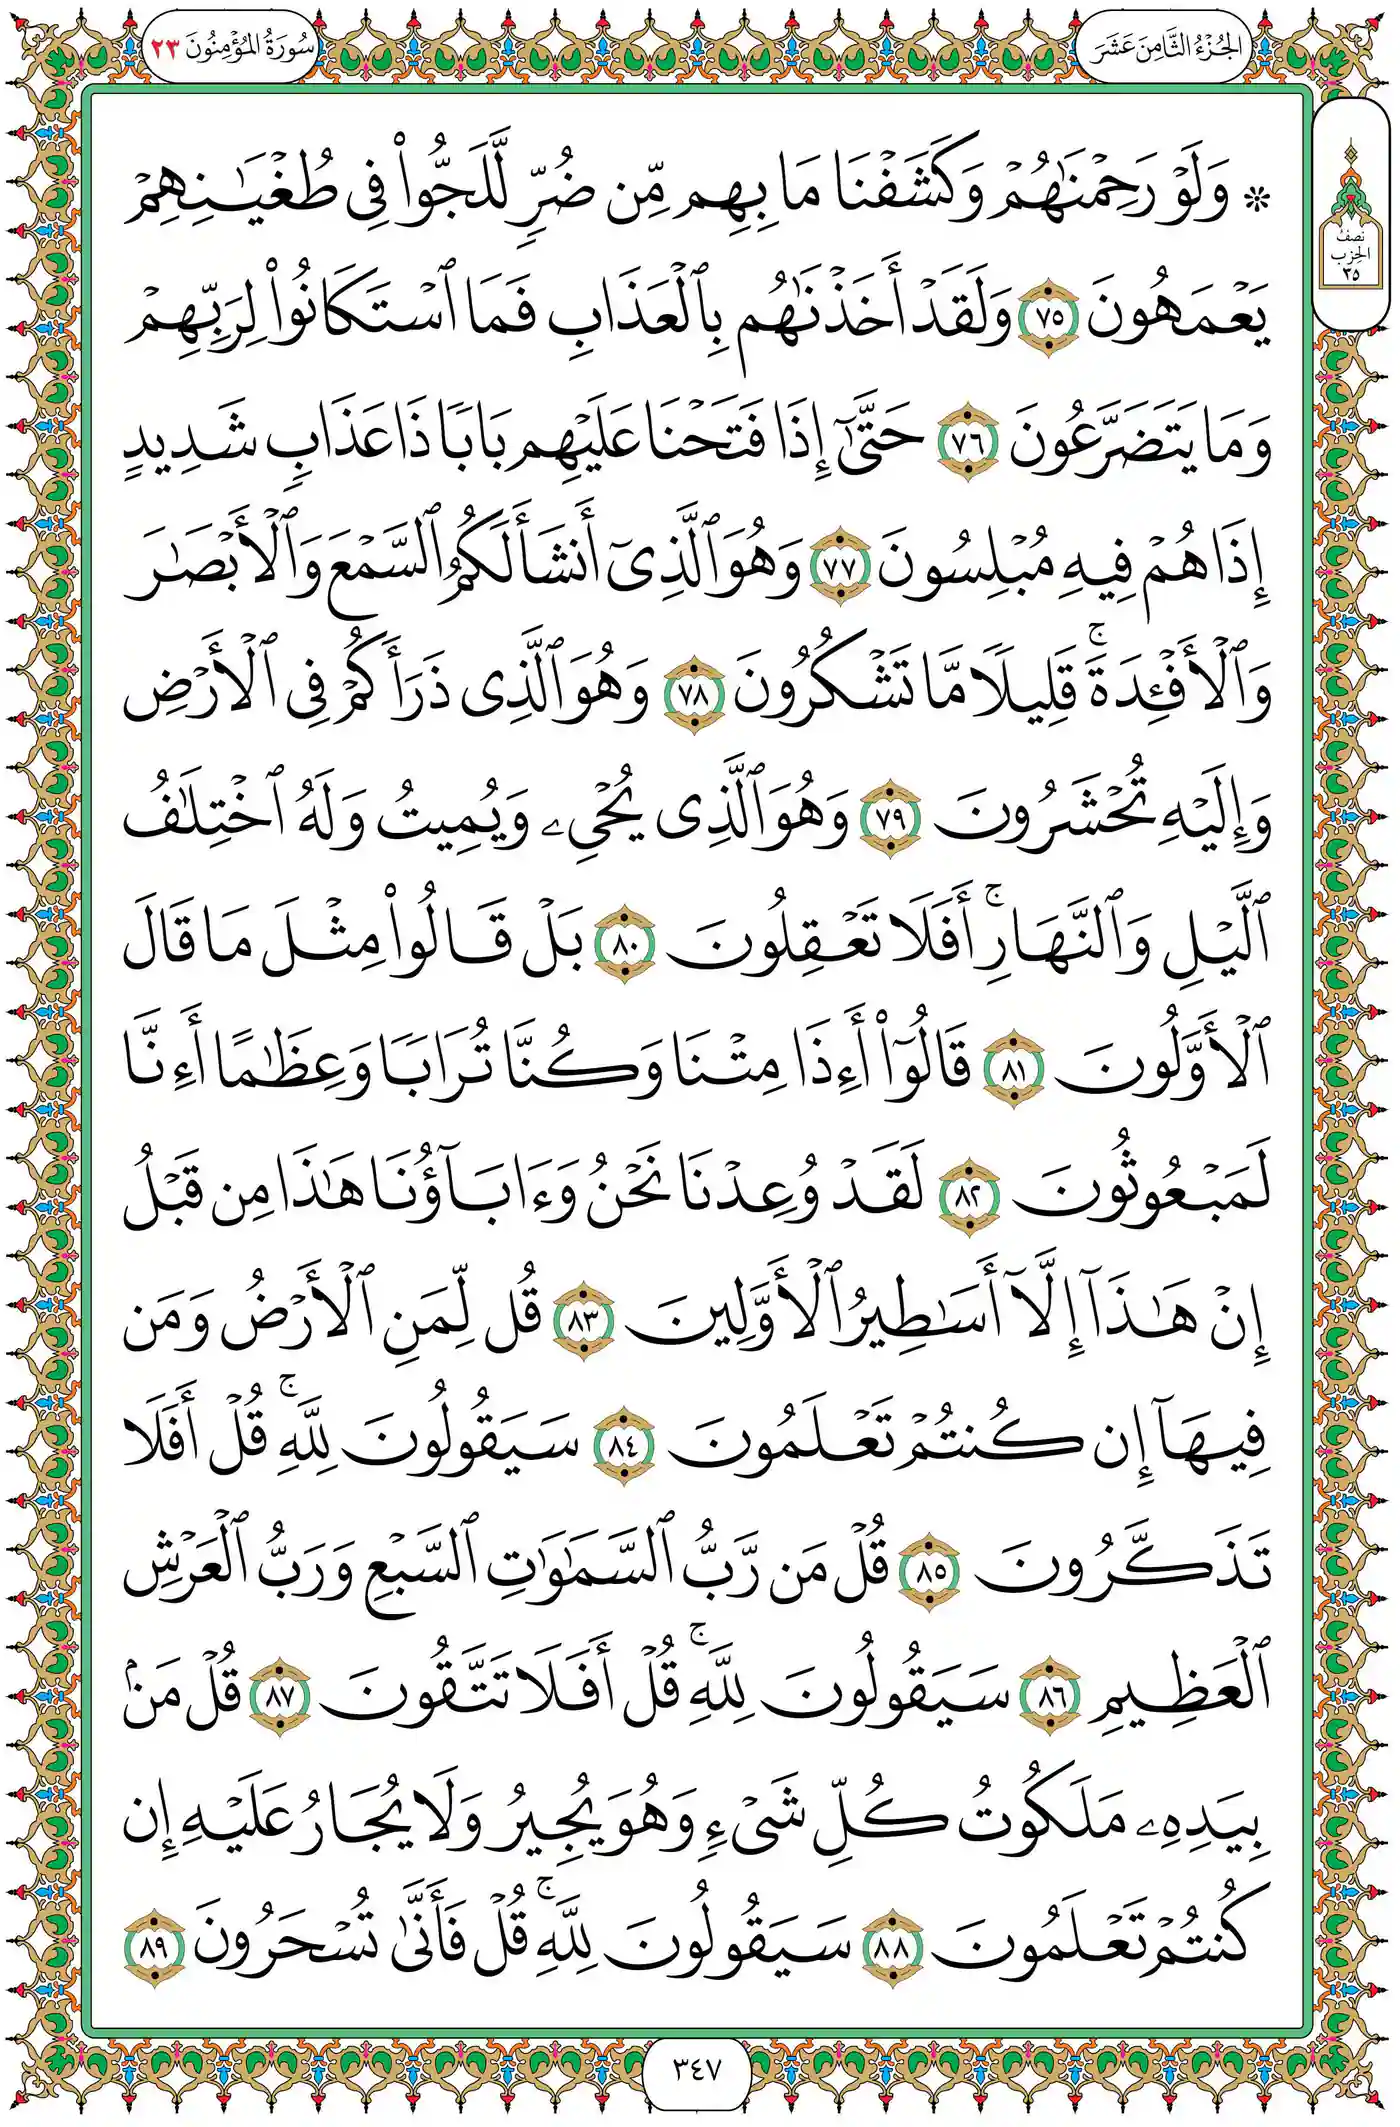 الجُزْءُ الثَّامِنَ عَشَرَ
سُورَةُ المُؤْمِنُونَ ٢٣
نصف
الحزب
٣٥
۞ وَلَوْ رَحِمْنَٰهُمْ وَكَشَفْنَا مَا بِهِم مِّن ضُرٍّ لَّلَجُّوا۟ فِى طُغْيَٰنِهِمْ
يَعْمَهُونَ ٧٥ وَلَقَدْ أَخَذْنَٰهُم بِٱلْعَذَابِ فَمَا ٱسْتَكَانُوا۟ لِرَبِّهِمْ
وَمَا يَتَضَرَّعُونَ ٧٦ حَتَّىٰٓ إِذَا فَتَحْنَا عَلَيْهِم بَابًا ذَا عَذَابٍ شَدِيدٍ
إِذَا هُمْ فِيهِ مُبْلِسُونَ ٧٧ وَهُوَ ٱلَّذِىٓ أَنشَأَ لَكُمُ ٱلسَّمْعَ وَٱلْأَبْصَٰرَ
وَٱلْأَفْـِٔدَةَ ۚ قَلِيلًا مَّا تَشْكُرُونَ ٧٨ وَهُوَ ٱلَّذِى ذَرَأَكُمْ فِى ٱلْأَرْضِ
وَإِلَيْهِ تُحْشَرُونَ ٧٩ وَهُوَ ٱلَّذِى يُحْىِۦ وَيُمِيتُ وَلَهُ ٱخْتِلَٰفُ
ٱلَّيْلِ وَٱلنَّهَارِ ۚ أَفَلَا تَعْقِلُونَ ٨٠ بَلْ قَالُوا۟ مِثْلَ مَا قَالَ
ٱلْأَوَّلُونَ ٨١ قَالُوٓا۟ أَءِذَا مِتْنَا وَكُنَّا تُرَابًا وَعِظَٰمًا أَءِنَّا
لَمَبْعُوثُونَ ٨٢ لَقَدْ وُعِدْنَا نَحْنُ وَءَابَآؤُنَا هَٰذَا مِن قَبْلُ
إِنْ هَٰذَآ إِلَّآ أَسَٰطِيرُ ٱلْأَوَّلِينَ ٨٣ قُل لِّمَنِ ٱلْأَرْضُ وَمَن
فِيهَآ إِن كُنتُمْ تَعْلَمُونَ ٨٤ سَيَقُولُونَ لِلَّهِ ۚ قُلْ أَفَلَا
تَذَكَّرُونَ ٨٥ قُلْ مَن رَّبُّ ٱلسَّمَٰوَٰتِ ٱلسَّبْعِ وَرَبُّ ٱلْعَرْشِ
ٱلْعَظِيمِ ٨٦ سَيَقُولُونَ لِلَّهِ ۚ قُلْ أَفَلَا تَتَّقُونَ ٨٧ قُلْ مَنۢ
بِيَدِهِۦ مَلَكُوتُ كُلِّ شَىْءٍ وَهُوَ يُجِيرُ وَلَا يُجَارُ عَلَيْهِ إِن
كُنتُمْ تَعْلَمُونَ ٨٨ سَيَقُولُونَ لِلَّهِ ۚ قُلْ فَأَنَّىٰ تُسْحَرُونَ ٨٩
٣٤٧